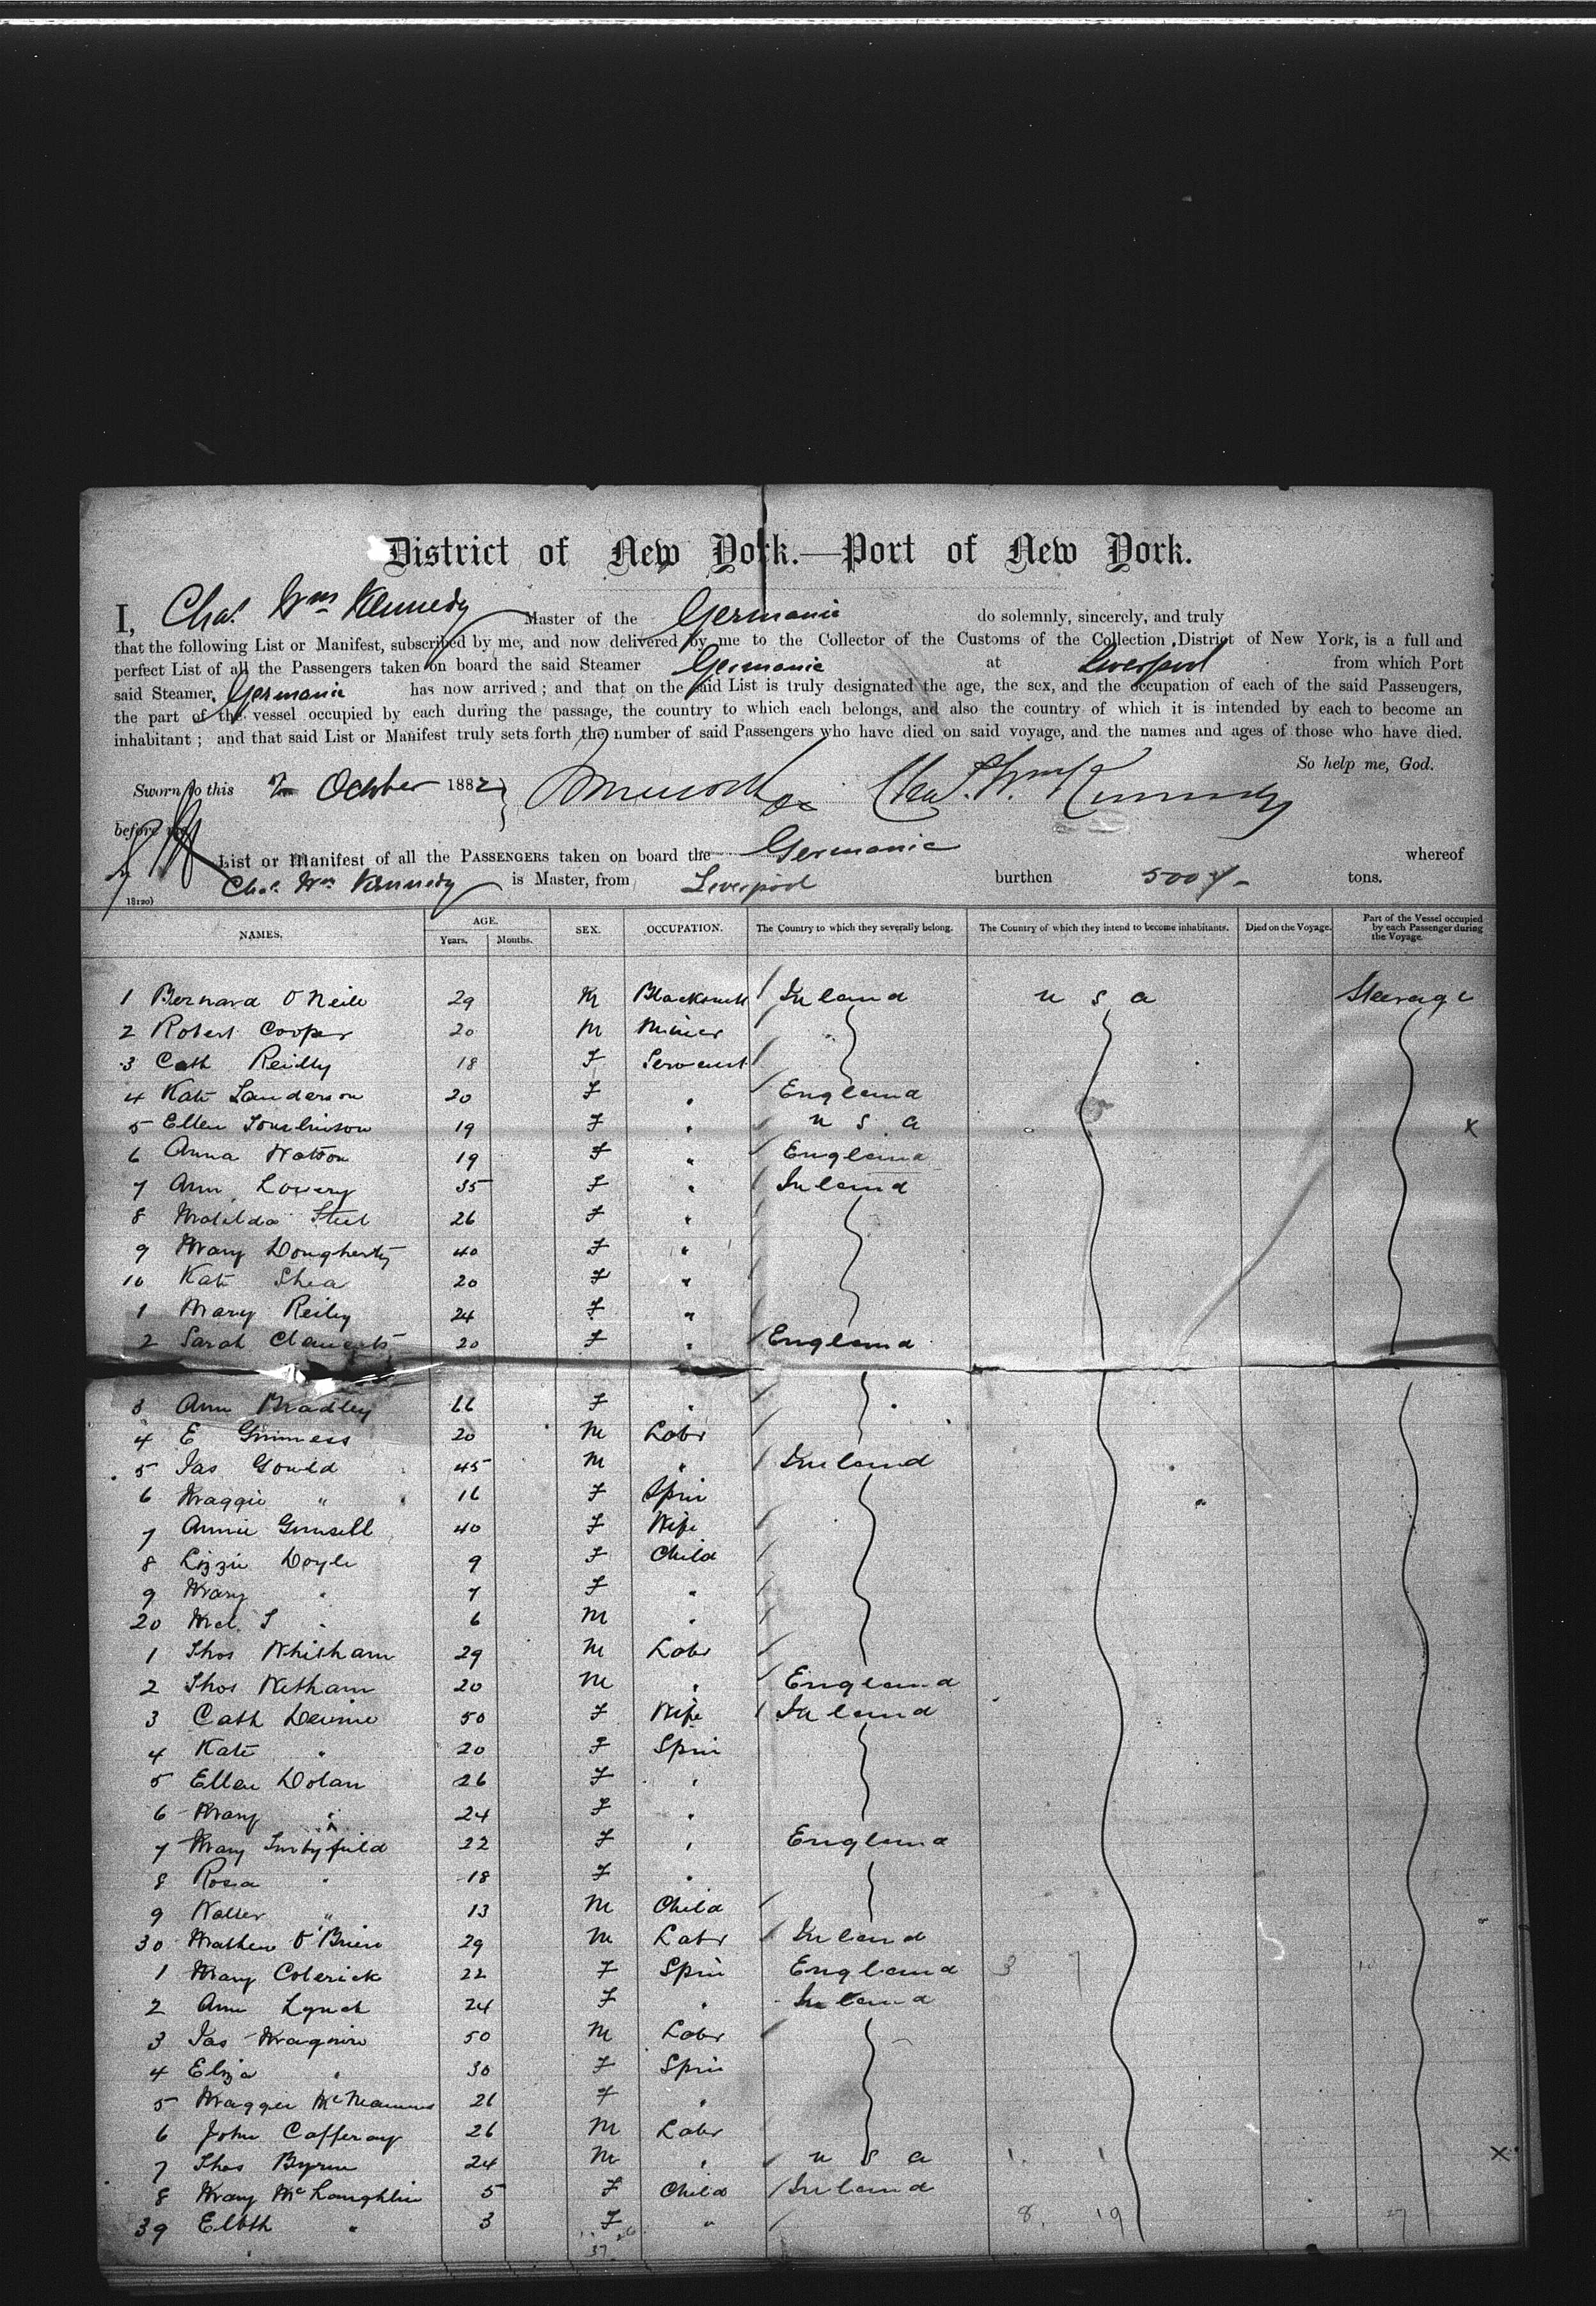 District of New York.—Port of New York.
I, Chas. Wm Kennedy Master of the Germanic do solemnly, sincerely, and truly
that the following List or Manifest, subscribed by me, and now delivered by me to the Collector of the Customs of the Collection District of New York, is a full and
perfect List of all the Passengers taken on board the said Steamer Germanic at Liverpool from which Port
said Steamer, Germanic has now arrived; and that on the said List is truly designated the age, the sex, and the occupation of each of the said Passengers,
the part of the vessel occupied by each during the passage, the country to which each belongs, and also the country of which it is intended by each to become an
inhabitant; and that said List or Manifest truly sets forth the number of said Passengers who have died on said voyage, and the names and ages of those who have died.
So help me, God.
Sworn to this October 1882 Chas. Wm Kennedy
before me
List or Manifest of all the PASSENGERS taken on board the Germanic whereof
Chas. Wm Kennedy is Master, from Liverpool burthen 5004 tons.
NAMES. AGE. Years. Months. SEX. OCCUPATION. The Country to which they severally belong. The Country of which they intend to become inhabitants. Died on the Voyage. Part of the Vessel occupied by each Passenger during the Voyage.
1 Bernard O'Neill 29 M Blacksmith Ireland U S A Steerage
2 Robert Cooper 20 M Miner
3 Cath Reilly 18 F Servant
4 Kate Sanderson 20 F " England
5 Ellen Tomlinson 19 F " U S A X
6 Anna Watson 19 F " England
7 Ann Lowery 35 F " Ireland
8 Matilda Steel 26 F "
9 Mary Dougherty 40 F "
10 Kate Shea 20 F "
1 Mary Reiley 24 F "
2 Sarah Clements 20 F " England
3 Ann Bradley 66 F "
4 E Guinness 20 M Labr
5 Jas Gould 45 M " Ireland
6 Maggie " 16 F Spin
7 Annie 40 F Wife
8 Lizzie Doyle 9 F Child
9 Mary " 7 F "
20 6 M "
1 Thos Whitham 29 M Labr
2 Thos 20 M " England
3 Cath Devine 50 F Wife Ireland
4 Kate " 20 F Spin
5 Ellen Dolan 26 F "
6 Mary " 24 F "
7 Mary 22 F " England
8 Rosa " 18 F "
9 Walter " 13 M Child
30 Mathew O'Brien 29 M Labr Ireland
1 Mary Colerick 22 F Spin England
2 Ann Lynch 24 F " Ireland
3 Jas Maguire 50 M Labr
4 Eliza " 30 F Spin
5 Maggie McManus 21 F "
6 John Cafferay 26 M Labr
7 Thos Byrne 24 M " U S A X
8 Mary McLaughlin 5 F Child Ireland
39 Elbth " 3 F "